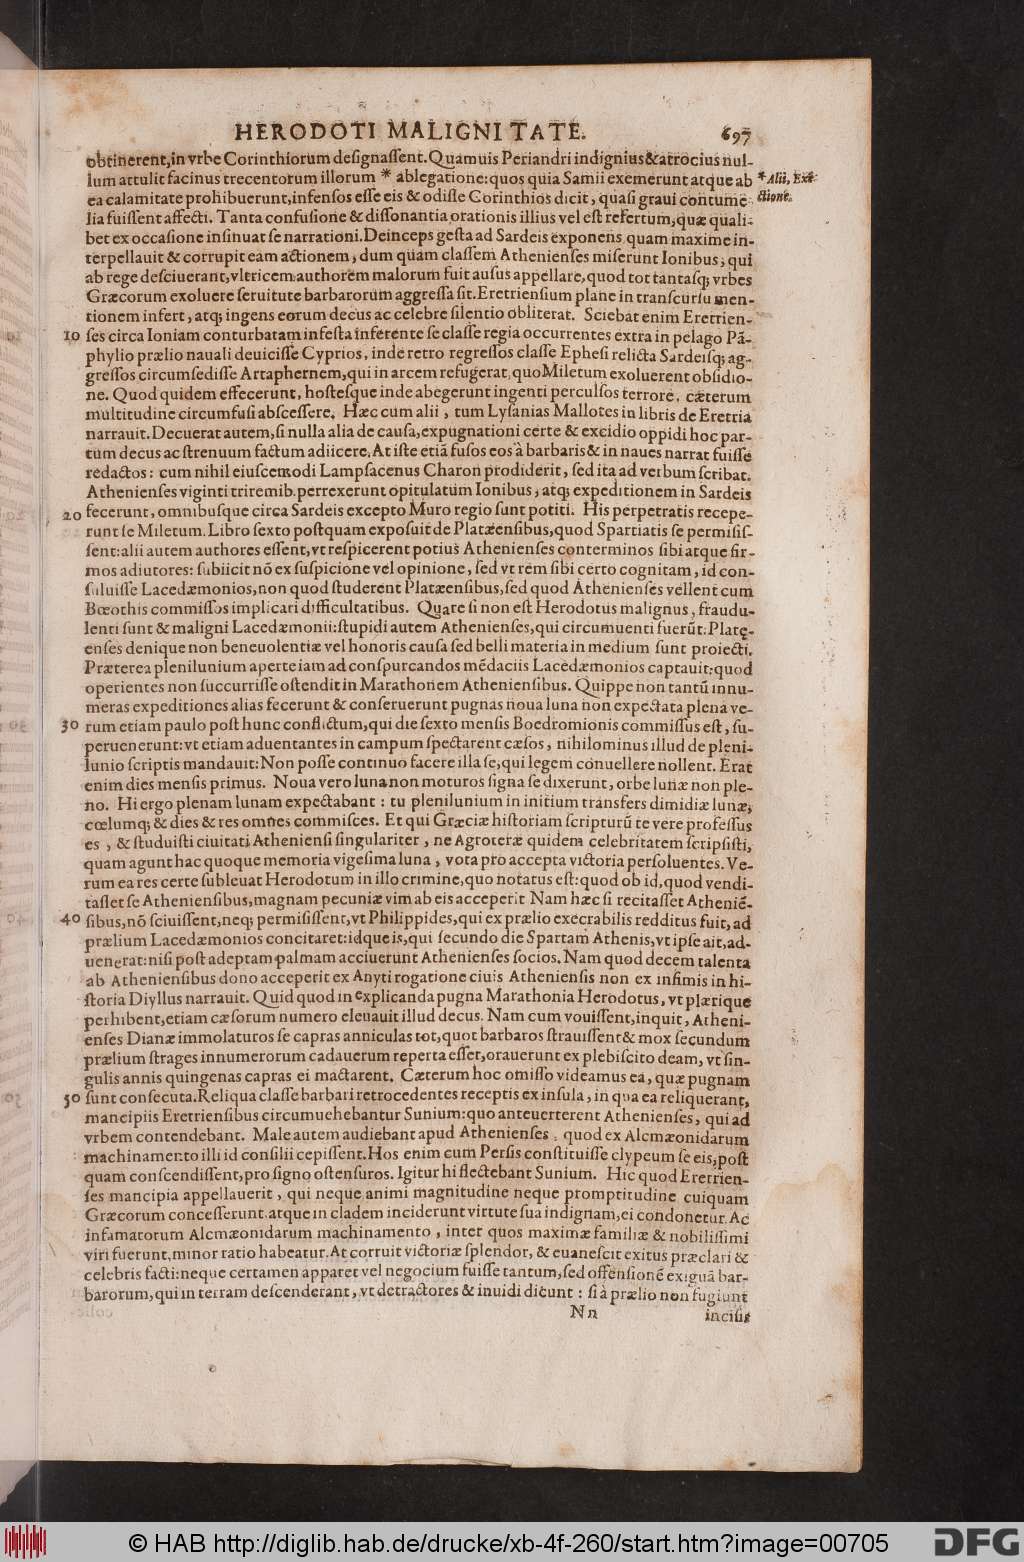 HERODOTI MALIGNITATE. 697
obtinerent, in vrbe Corinthiorum designassent. Quamuis Periandri indignius & atrocius nul-
lum attulit facinus trecentorum illorum * ablegatione: quos quia Samii exemerunt atque ab
* Alii, Exe-
ctione.
ea calamitate prohibuerunt, infensos esse eis & odisse Corinthios dicit, quasi graui contume-
lia fuissent affecti. Tanta confusione & dissonantia orationis illius vel est refertum, quæ quali-
bet ex occasione insinuat se narrationi. Deinceps gesta ad Sardeis exponens quam maxime in-
terpellauit & corrupit eam actionem, dum quam classem Athenienses miserunt Ionibus, qui
ab rege desciuerant, vltricem authorem malorum fuit ausus appellare, quod tot tantasq; vrbes
Græcorum exoluere seruitute barbarorum aggressa sit. Eretriensium plane in transcursu men-
tionem infert, atq; ingens eorum decus ac celebre silentio obliterat. Sciebat enim Eretrien-
10 ses circa Ioniam conturbatam infesta inferente se classe regia occurrentes extra in pelago Pā-
phylio prælio nauali deuicisse Cyprios, inde retro regressos classe Ephesi relicta Sardeisq; ag-
gressos circumsedisse Artaphernem, qui in arcem refugerat, quo Miletum exoluerent obsidio-
ne. Quod quidem effecerunt, hostesque inde abegerunt ingenti perculsos terrore, cæterum
multitudine circumfusi abscessere. Hæc cum alii, tum Lysanias Mallotes in libris de Eretria
narrauit. Decuerat autem, si nulla alia de causa, expugnationi certe & excidio oppidi hoc par-
tum decus ac strenuum factum adiicere. At iste etiā fusos eos à barbaris & in naues narrat fuisse
redactos: cum nihil eiuscemodi Lampsacenus Charon prodiderit, sed ita ad verbum scribat.
Athenienses viginti triremib. perrexerunt opitulatum Ionibus, atq; expeditionem in Sardeis
20 fecerunt, omnibusque circa Sardeis excepto Muro regio sunt potiti. His perpetratis recepe-
runt se Miletum. Libro sexto postquam exposuit de Platæensibus, quod Spartiatis se permisis-
sent: alii autem authores essent, vt respicerent potius Athenienses conterminos sibi atque fir-
mos adiutores: subiicit nō ex suspicione vel opinione, sed vt rem sibi certo cognitam, id con-
suluisse Lacedæmonios, non quod studerent Platæensibus, sed quod Athenienses vellent cum
Bœothis commissos implicari difficultatibus. Quare si non est Herodotus malignus, fraudu-
lenti sunt & maligni Lacedæmonii: stupidi autem Athenienses, qui circumuenti fuerūt: Platę-
enses denique non beneuolentiæ vel honoris causa sed belli materia in medium sunt proiecti.
Præterea plenilunium aperte iam ad conspurcandos mēdaciis Lacedæmonios captauit: quod
operientes non succurrisse ostendit in Marathonem Atheniensibus. Quippe non tantū innu-
meras expeditiones alias fecerunt & conseruerunt pugnas noua luna non expectata plena ve-
30 rum etiam paulo post hunc conflictum, qui die sexto mensis Boedromionis commissus est, su-
peruenerunt: vt etiam aduentantes in campum spectarent cæsos, nihilominus illud de pleni-
lunio scriptis mandauit: Non posse continuo facere illa se, qui legem conuellere nollent. Erat
enim dies mensis primus. Noua vero luna non moturos signa se dixerunt, orbe lunæ non ple-
no. Hi ergo plenam lunam expectabant: tu plenilunium in initium transfers dimidiæ lunæ,
cœlumq; & dies & res omnes commisces. Et qui Græciæ historiam scripturū te vere professus
es, & studuisti ciuitati Atheniensi singulariter, ne Agroteræ quidem celebritatem scripsisti,
quam agunt hac quoque memoria vigesima luna, vota pro accepta victoria persoluentes. Ve-
rum ea res certe subleuat Herodotum in illo crimine, quo notatus est: quod ob id, quod vendi-
tasset se Atheniensibus, magnam pecuniæ vim ab eis acceperit Nam hæc si recitasset Atheniē-
40 sibus, nō sciuissent, neq; permisissent, vt Philippides, qui ex prælio execrabilis redditus fuit, ad
prælium Lacedæmonios concitaret: idque is, qui secundo die Spartam Athenis, vt ipse ait, ad-
uenerat: nisi post adeptam palmam acciuerunt Athenienses socios. Nam quod decem talenta
ab Atheniensibus dono acceperit ex Anyti rogatione ciuis Atheniensis non ex infimis in hi-
storia Diyllus narrauit. Quid quod in explicanda pugna Marathonia Herodotus, vt plærique
perhibent, etiam cæsorum numero eleuauit illud decus. Nam cum vouissent, inquit, Atheni-
enses Dianæ immolaturos se capras anniculas tot, quot barbaros strauissent & mox secundum
prælium strages innumerorum cadauerum reperta esset, orauerunt ex plebiscito deam, vt sin-
gulis annis quingenas capras ei mactarent. Cæterum hoc omisso videamus ea, quæ pugnam
50 sunt consecuta. Reliqua classe barbari retrocedentes receptis ex insula, in qua ea reliquerant,
mancipiis Eretriensibus circumuehebantur Sunium: quo anteuerterent Athenienses, qui ad
vrbem contendebant. Male autem audiebant apud Athenienses, quod ex Alcmæonidarum
machinamento illi id consilii cepissent. Hos enim cum Persis constituisse clypeum se eis, post
quam conscendissent, pro signo ostensuros. Igitur hi flectebant Sunium. Hic quod Eretrien-
ses mancipia appellauerit, qui neque animi magnitudine neque promptitudine cuiquam
Græcorum concesserunt. atque in cladem inciderunt virtute sua indignam, ei condonetur. Ac
infamatorum Alcmæonidarum machinamento, inter quos maximæ familiæ & nobilissimi
viri fuerunt, minor ratio habeatur. At corruit victoriæ splendor, & euanescit exitus præclari &
celebris facti: neque certamen apparet vel negocium fuisse tantum, sed offensionē exiguā bar-
barorum, qui in terram descenderant, vt detractores & inuidi dicunt: si à prælio non fugiunt
Nn incisis
© HAB http://diglib.hab.de/drucke/xb-4f-260/start.htm?image=00705 DFG